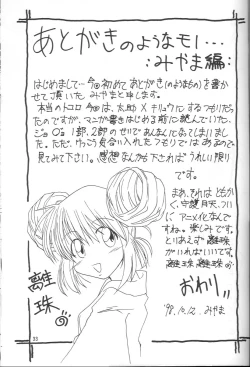 あとがきのようなモノ…
:みやま編:
はじめまして…今回初めてあとがき(のようなもの)を書か
せて頂いた、みやまと申します。
本当のトコロ今回は、太郎×キリュウにするつもりだっ
たのですが、マンガ書きはじめる前に読んでいた、
ジョジョ1部、2部のせいであんなんなってしまいまし
た。ただ、けっこう気合い入れたつもりではあるので
見てみて下さい。感想なんかも下さればうれしい限り
です。
まあ、それはともか
く、守護月天、つい
に アニメ化なんで
すね。楽しみです。
とりあえず離珠
がいればいいです。
離珠 離珠 離珠
おわり
'98.10.12. みやま
離珠
33